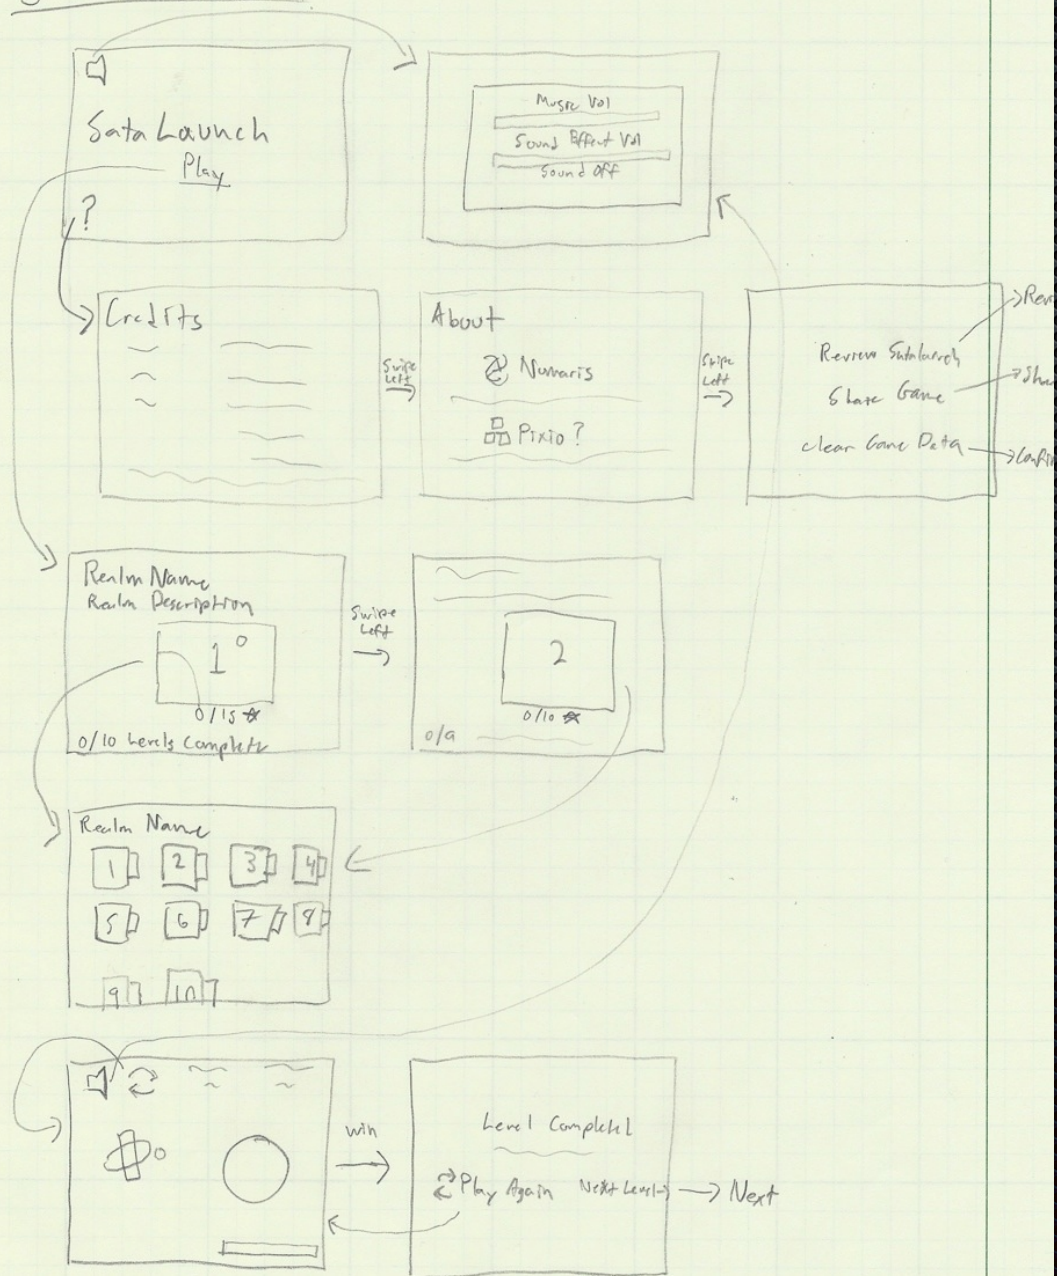 Sata Launch
Play
?
Music Vol
Sound Effect Vol
Sound Off
Credits
Swipe
Left
About
Numaris
Pixio ?
Swipe
Left
Review Satalaunch
Share Game
Clear Game Data
Realm Name
Realm Description
1
0/15
0/10 Levels Complete
Swipe
Left
2
0/10
0/9
Realm Name
1 2 3 4
5 6 7 8
9 10
win
Level Complete!
Play Again Next Level
Next